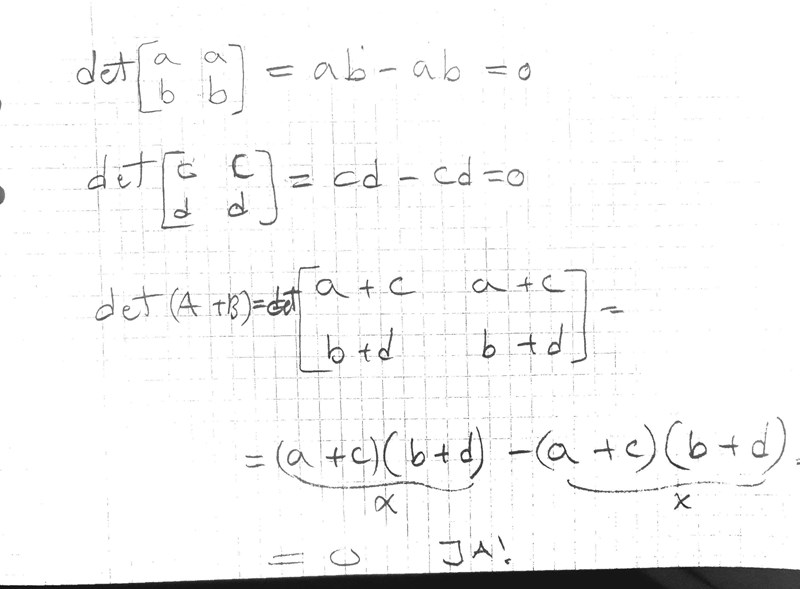 det[a a; b b] = ab - ab = 0
det[c c; d d] = cd - cd = 0
det(A+B)=det[a+c a+c; b+d b+d] =
=(a+c)(b+d) -(a+c)(b+d)=
x x
= 0 JA!